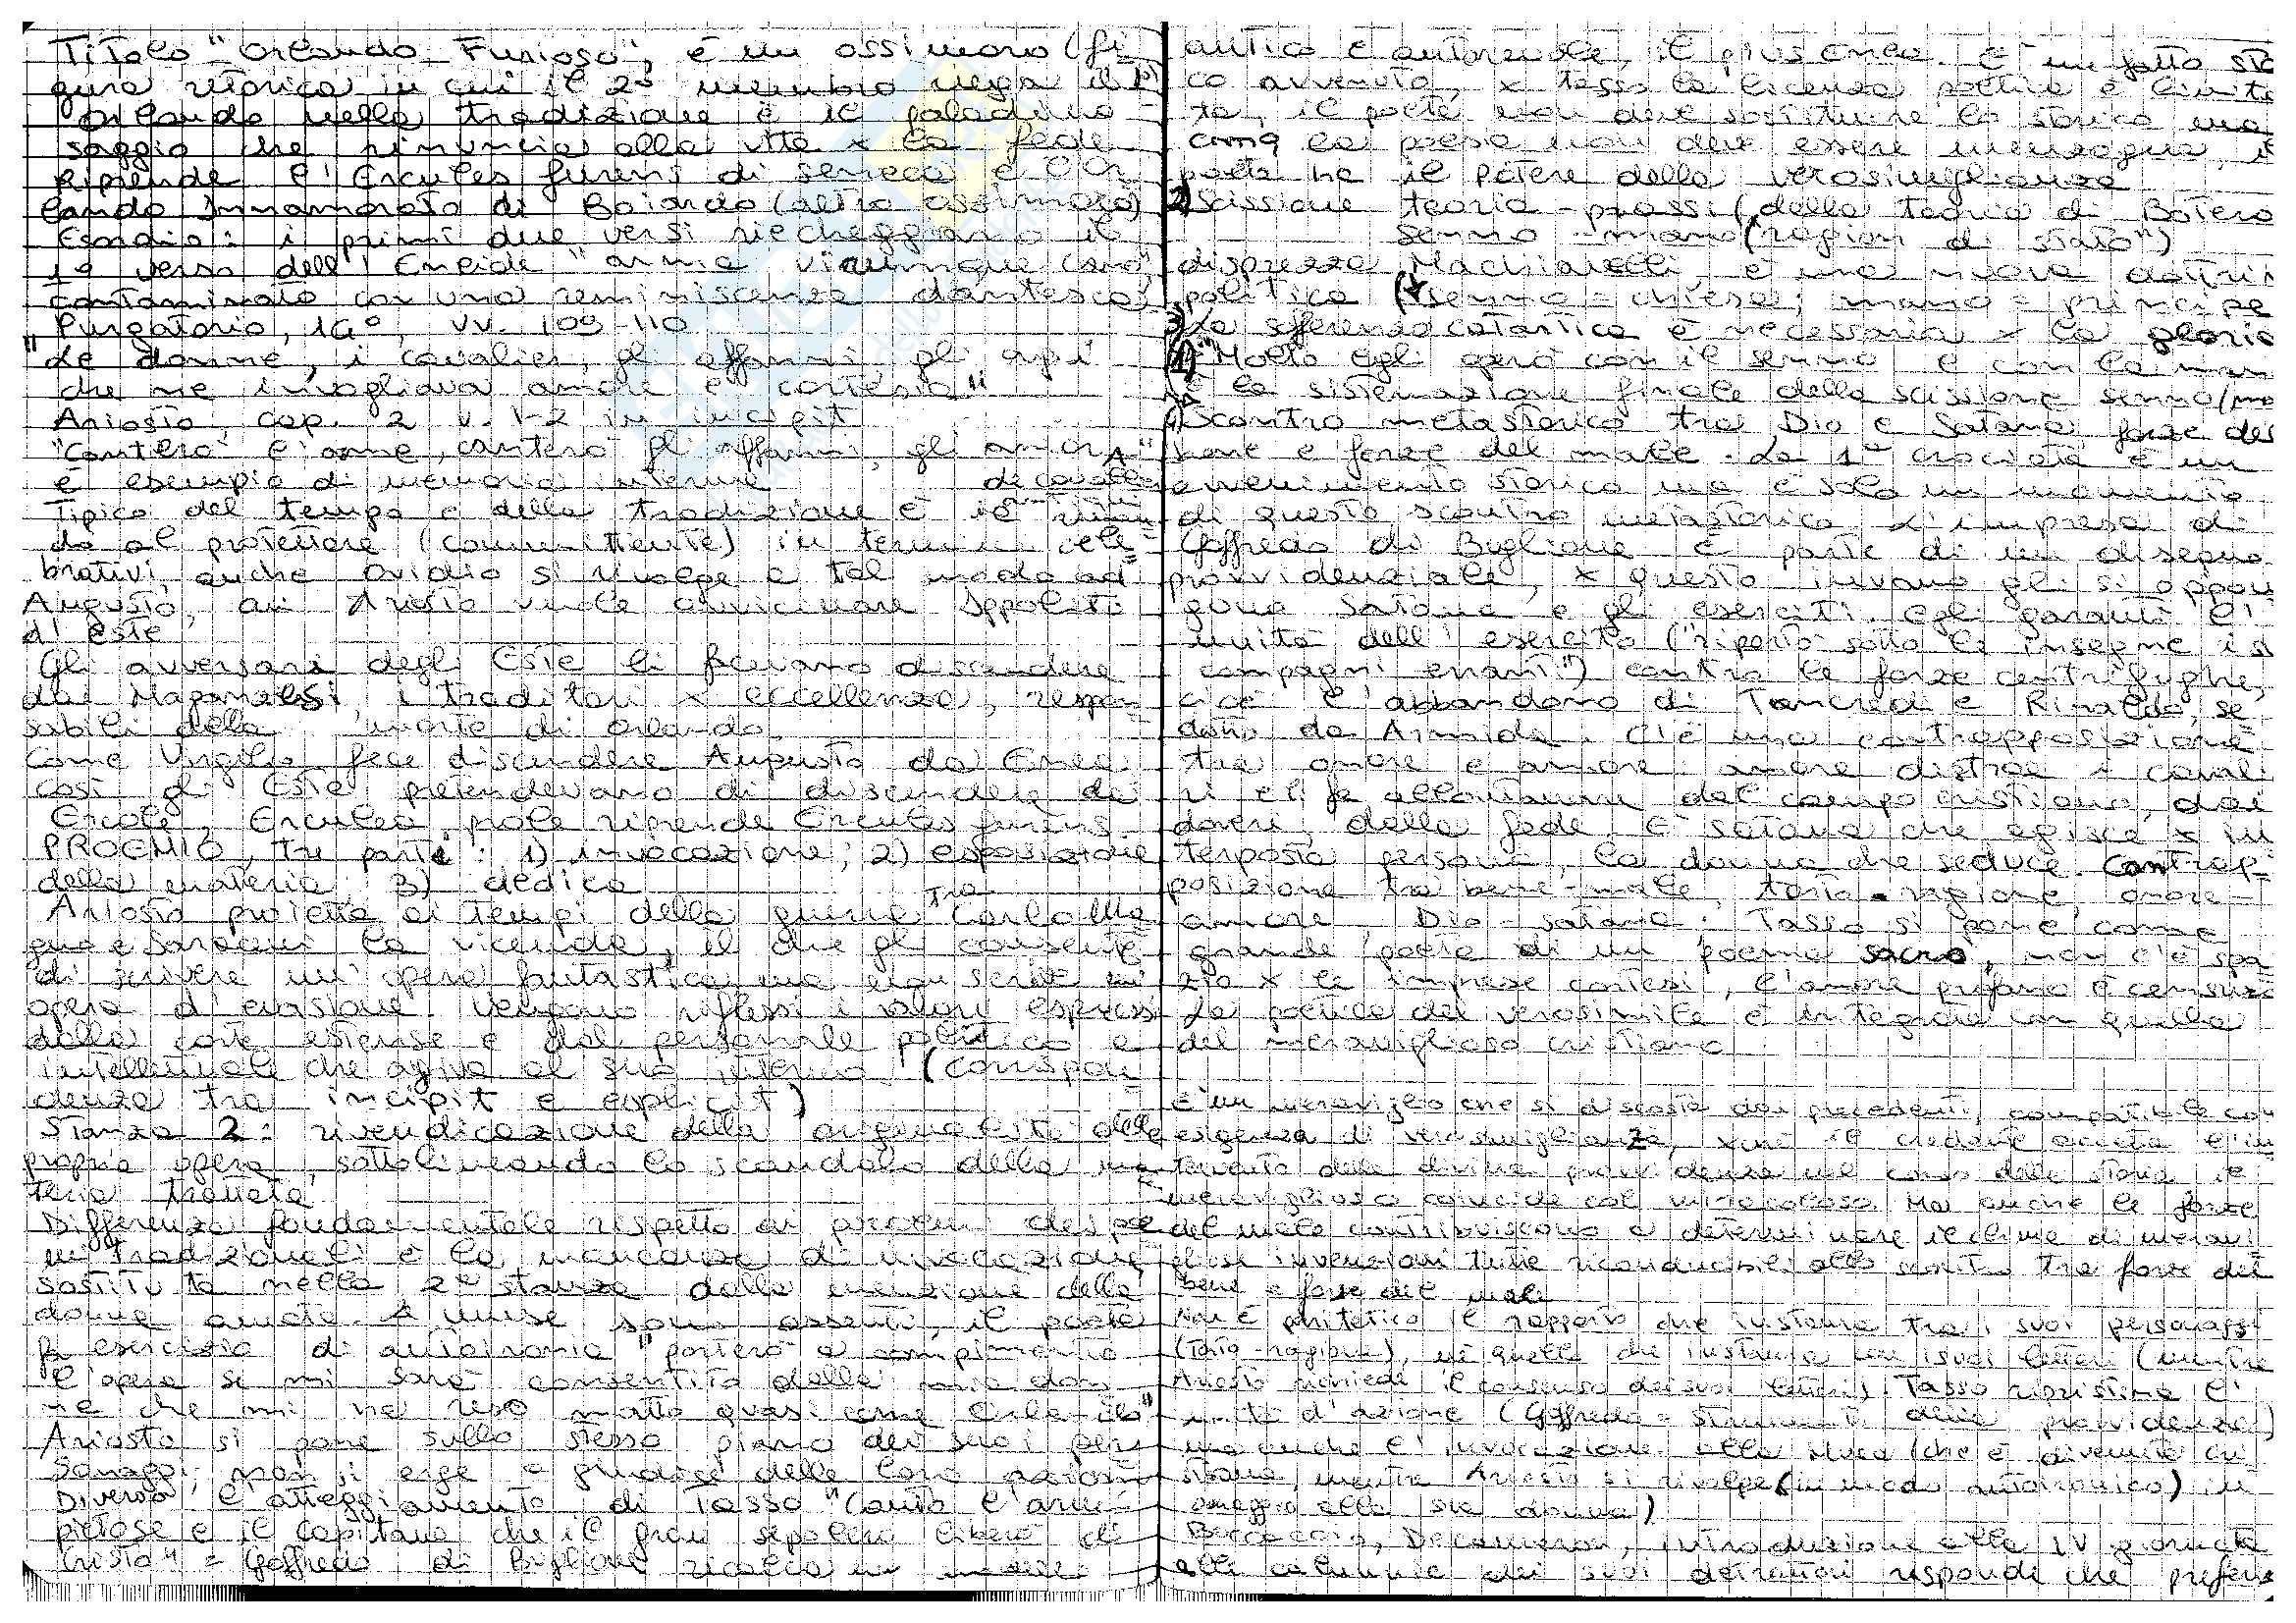 Titolo "Orlando Furioso", è un ossimoro (fi
gura retorica in cui il 2° membro nega il 1°)
Orlando nella tradizione è il paladino
saggio che rinuncia alla vita x la fede
Riprende l'Ercules furens di Seneca e l'Or
lando Innamorato di Boiardo (altro ossimoro)
Esordio: i primi due versi riecheggiano il
1° verso dell'Eneide "arma virumque cano",
contaminato con una reminiscenza dantesca,
Purgatorio, 14°, vv. 109-110
"Le donne, i cavalier, gli affanni, gli agi
che ne invogliava amore e cortesia"
Ariosto, cap. 2 v. 1-2 in incipit
"Canterò l'arme, canterò gli affanni, gli amor"
è esempio di memoria interna
Tipico del tempo e della tradizione è il riman
do al protettore (committente) in termini cele
brativi, anche Ovidio si rivolge a tal modo ad
Augusto, cui Ariosto vuole avvicinare Ippolito
d'Este
Gli avversari degli Este li facevano discendere
dai Maganzesi, i traditori x eccellenza, respon
sabili della morte di Orlando.
Come Virgilio fece discendere Augusto da Enea
così gli Este pretendevano di discendere da
Ercole, Erculea prole riprende Ercules furens.
PROEMIO, tre parti: 1) invocazione; 2) esposizione
della materia 3) dedica
Ariosto proietta ai tempi della guerra tra Carlo Ma
gno e Saraceni la vicenda, il che gli consente
di scrivere un'opera fantastica ma non scrive un'
opera d'evasione. Vengono riflessi i valori espressi
dalla corte estense e dal personale politico e
intellettuale che agiva al suo interno (corrispon
denza tra incipit e explicit)
Stanza 2: rivendicazione della originalità della
propria opera, sottolineando lo scandalo della ma
teria trattata
Differenza fondamentale rispetto ai proemi dei poe
mi tradizionali è la mancanza di invocazione,
sostituita nella 2ª stanza dalla menzione della
donna amata. Le muse sono assenti, il poeta
fa esercizio di autoironia "porterò a compimento
l'opera se mi sarà consentito dalla mia don
na che mi ha reso matto quasi come Orlando"
Ariosto si pone sullo stesso piano dei suoi per
sonaggi, non si erge a giudice delle loro azioni
Diverso l'atteggiamento di Tasso "Canto l'armi
pietose e il Capitano che il gran sepolcro liberò di
Cristo" = Goffredo di Buglione ricalca un modello
antico e autorevole, il pius Enea. È un fatto sto
rico avvenuto, x Tasso la licenza poetica è limita
ta, il poeta non deve sostituire lo storico ma
la poesia non deve essere menzogna, il
poeta ha il potere della verosimiglianza
2) Scissione teoria-prassi (della teoria di Botero
senno-mano ("ragion di stato")
disprezza Machiavelli, è una nuova dottri
politica (senno = chiesa; mano = principe
3) La sofferenza catartica è necessaria x la gloria
"Molto egli oprò con il senno e con la man
è la sistemazione finale della scissione senno/ma
1) Scontro metastorico tra Dio e Satana forze del
bene e forze del male. La 1ª crociata è un
avvenimento storico ma è solo un momento
di questo scontro metastorico. L'impresa di
Goffredo di Buglione è parte di un disegno
provvidenziale, x questo invano gli si oppon
gono Satana e gli eserciti. Egli garantì l'
unità dell'esercito ("riportò sotto le insegne i s
compagni erranti") contro le forze centrifughe,
cioè l'abbandono di Tancredi e Rinaldo, se
dotto da Armida. C'è una contrapposizione
tra onore e amore: amore distrae i cavali
ri e li fa allontanare dal campo cristiano, dai
doveri, dalla fede. È Satana che agisce x in
terposta persona, la donna che seduce. Contrap-
posizione tra bene-male, follia-ragione, onore-
amore, Dio-Satana. Tasso si pone come
grande poeta di un poema sacro, non c'è spa
zio x le imprese cortesi, l'amore profano è censura
La poetica del verosimile è integrata con quella
del meraviglioso cristiano
È un meraviglioso che si discosta dai precedenti, compatibile con
esigenza di verosimiglianza, il credente accetta l'in
tervento della divina provvidenza nel corso della storia il
meraviglioso coincide col miracoloso. Ma anche le forze
del male contribuiscono a determinare il clima di meravi
gliose invenzioni tutte riconducibili allo scontro tra forze del
bene e forze del male
Non è paritetico il rapporto che instaura tra i suoi personaggi
(follia-ragione), né quello che instaura con i suoi lettori (mentre
Ariosto richiede il consenso dei suoi lettori). Tasso ripristina l'
unità d'azione (Goffredo = strumento della provvidenza)
ma anche l'invocazione alla Musa (che è divenuta cri
stiana, mentre Ariosto si rivolge (in modo autoironico) in
omaggio alla sua donna)
Boccaccio, Decameron, introduzione alla IV giornata
alle calunnie dei suoi detrattori risponde che prefer